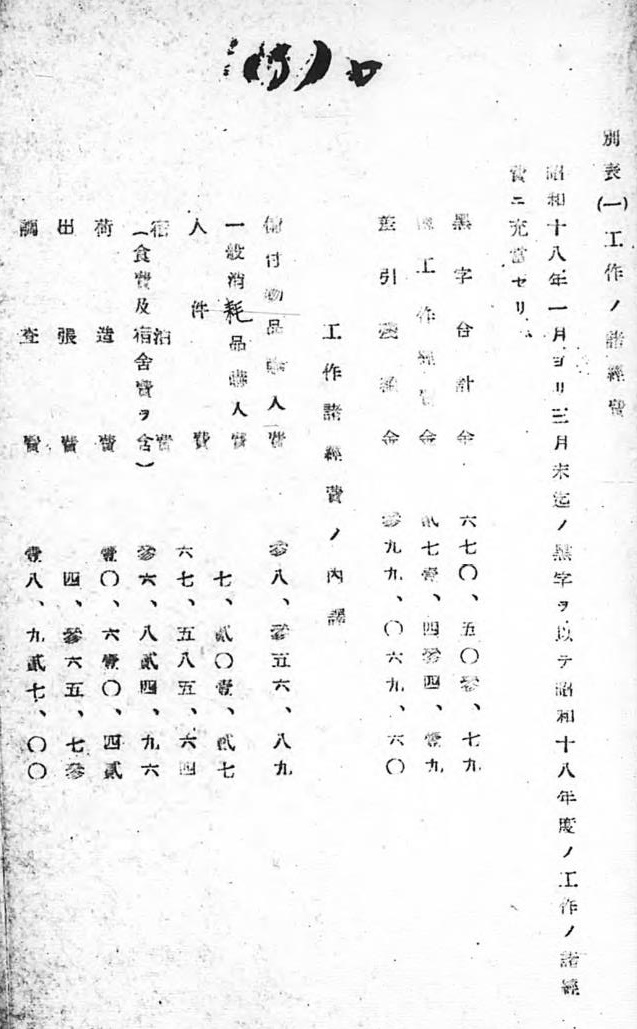 別表(一)工作ノ諸經費
昭和十八年一月ヨリ三月末迄ノ黑字ヲ以テ昭和十八年度ノ工作ノ諸經
費ニ充當セリ、
黑字合計金 六七〇、五〇參、七九
工作經費金 貳七壹、四參四、壹九
差引殘金 參九九、〇六九、六〇
工作諸經費ノ內譯
備付物品購入費 參八、參五六、八九
一般消耗品購入費 七、貳〇壹、貳七
人件費 六七、五八五、六四
宿泊費 參六、八貳四、九六
(食費及宿舍費ヲ含)
荷造費 壹〇、六壹〇、四貳
出張費 四、參六五、七參
調查費 壹八、九貳七、〇〇